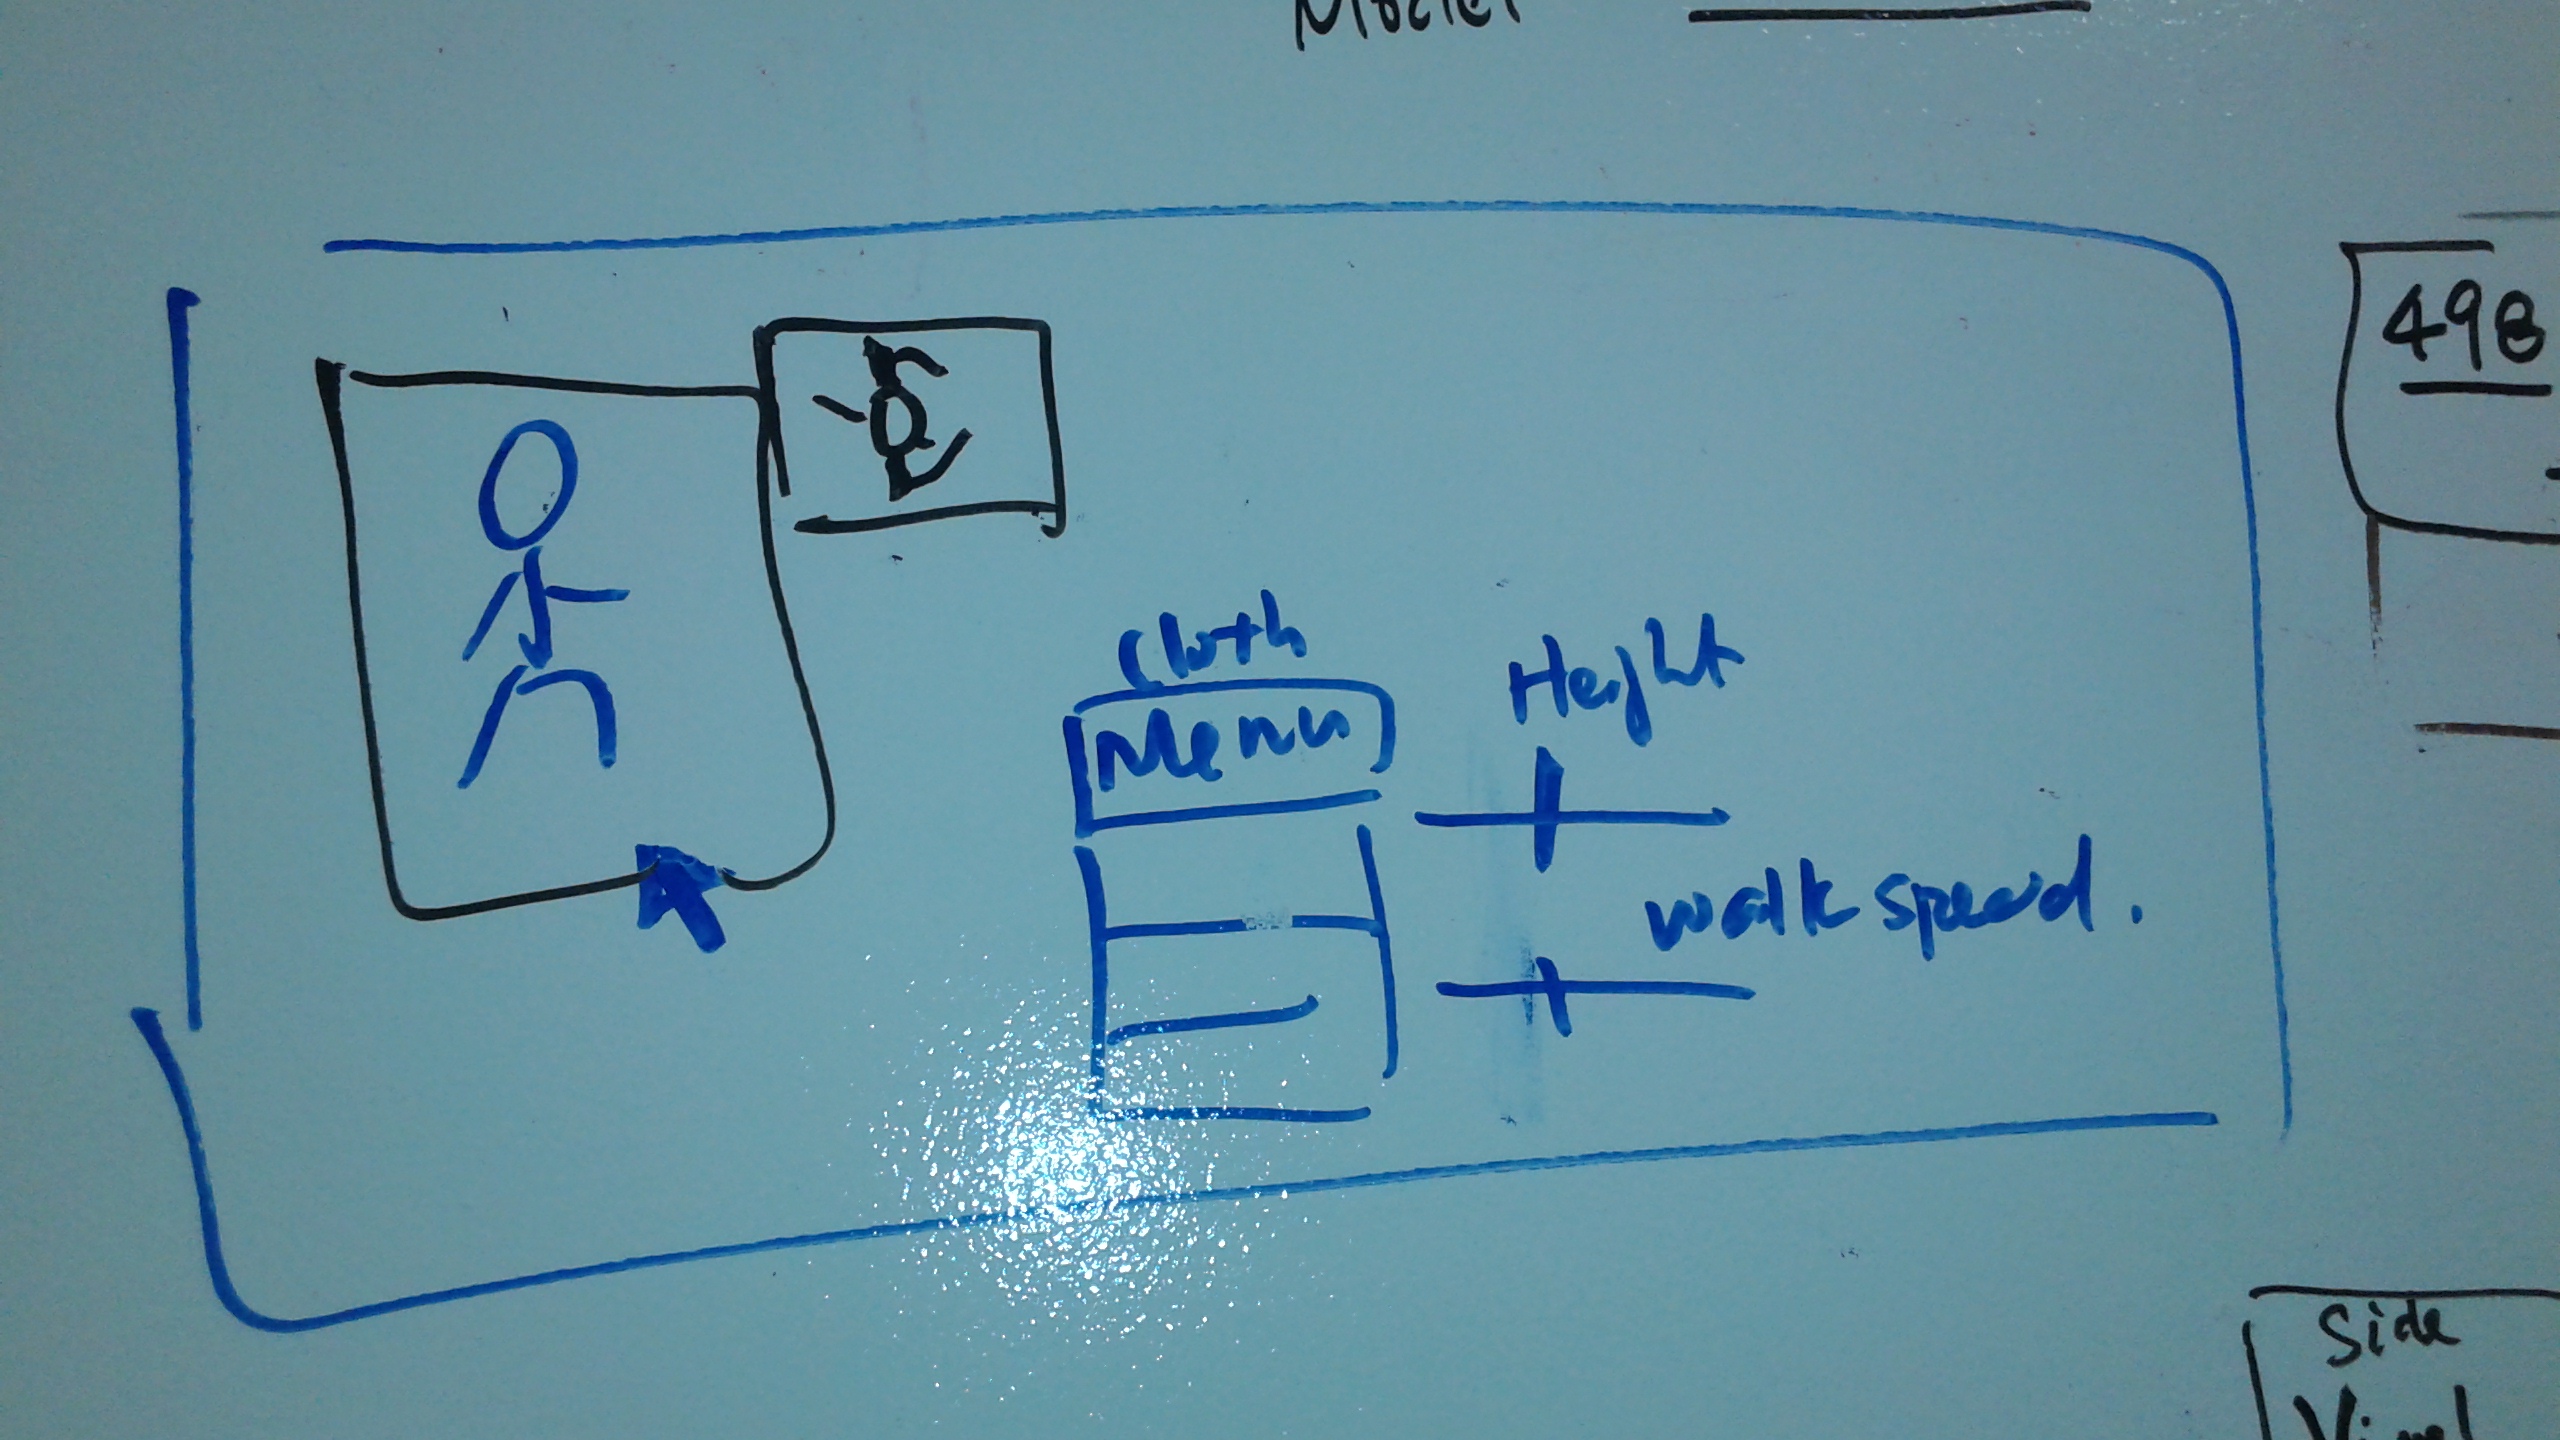 Model
498
Cloth
Menu
Height
walk speed.
Side